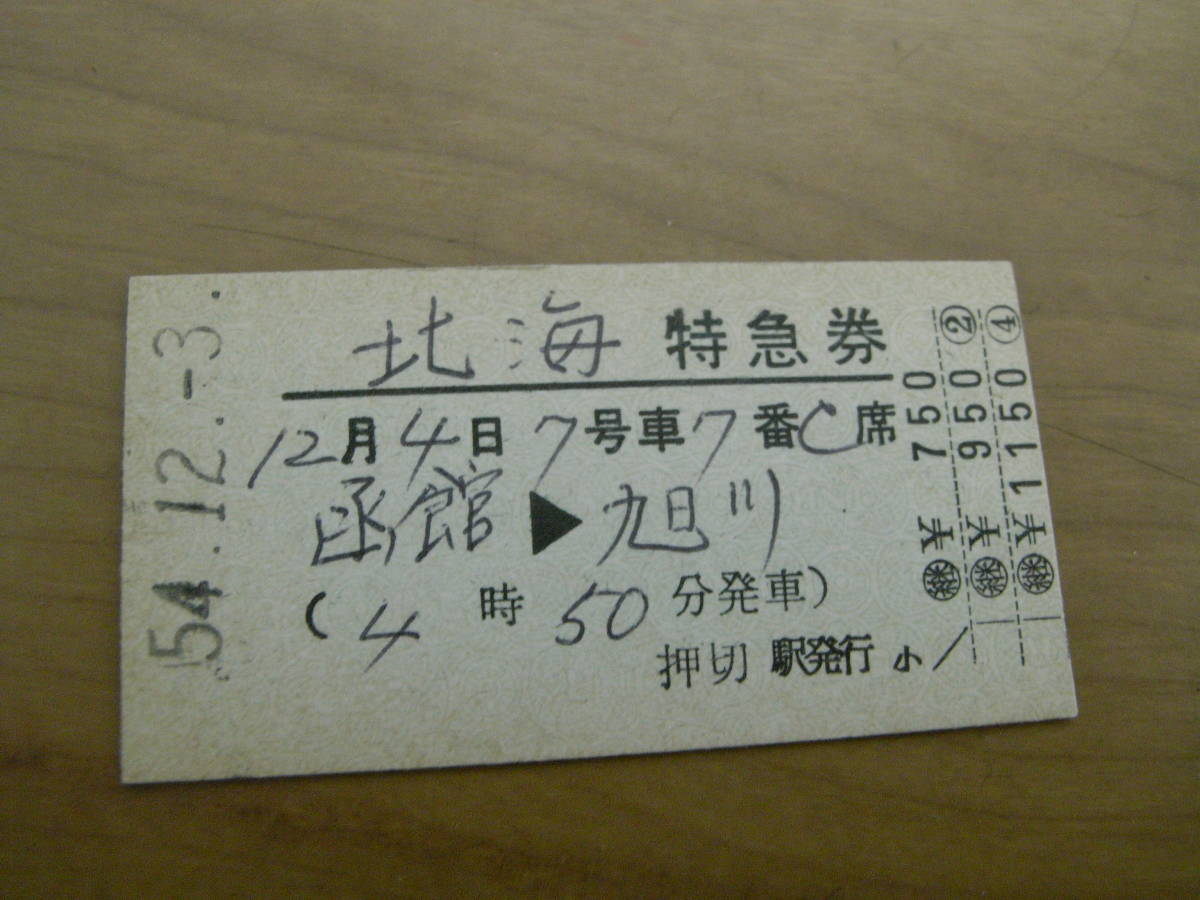 54.12.-3.
北海 特急券
12月4日 7号車7番C席
函館▶旭川
(4時50分発車)
押切駅発行 小/
㊵ ¥750
㊵ ¥950 ②
㊵ ¥1150 ④